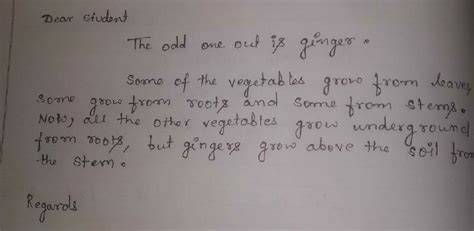 Dear Student
The odd one out is ginger.
Some of the vegetables grow from leaves,
some grow from roots and some from stems.
Now, all the other vegetables grow underground
from roots, but gingers grow above the soil from
the stem.
Regards